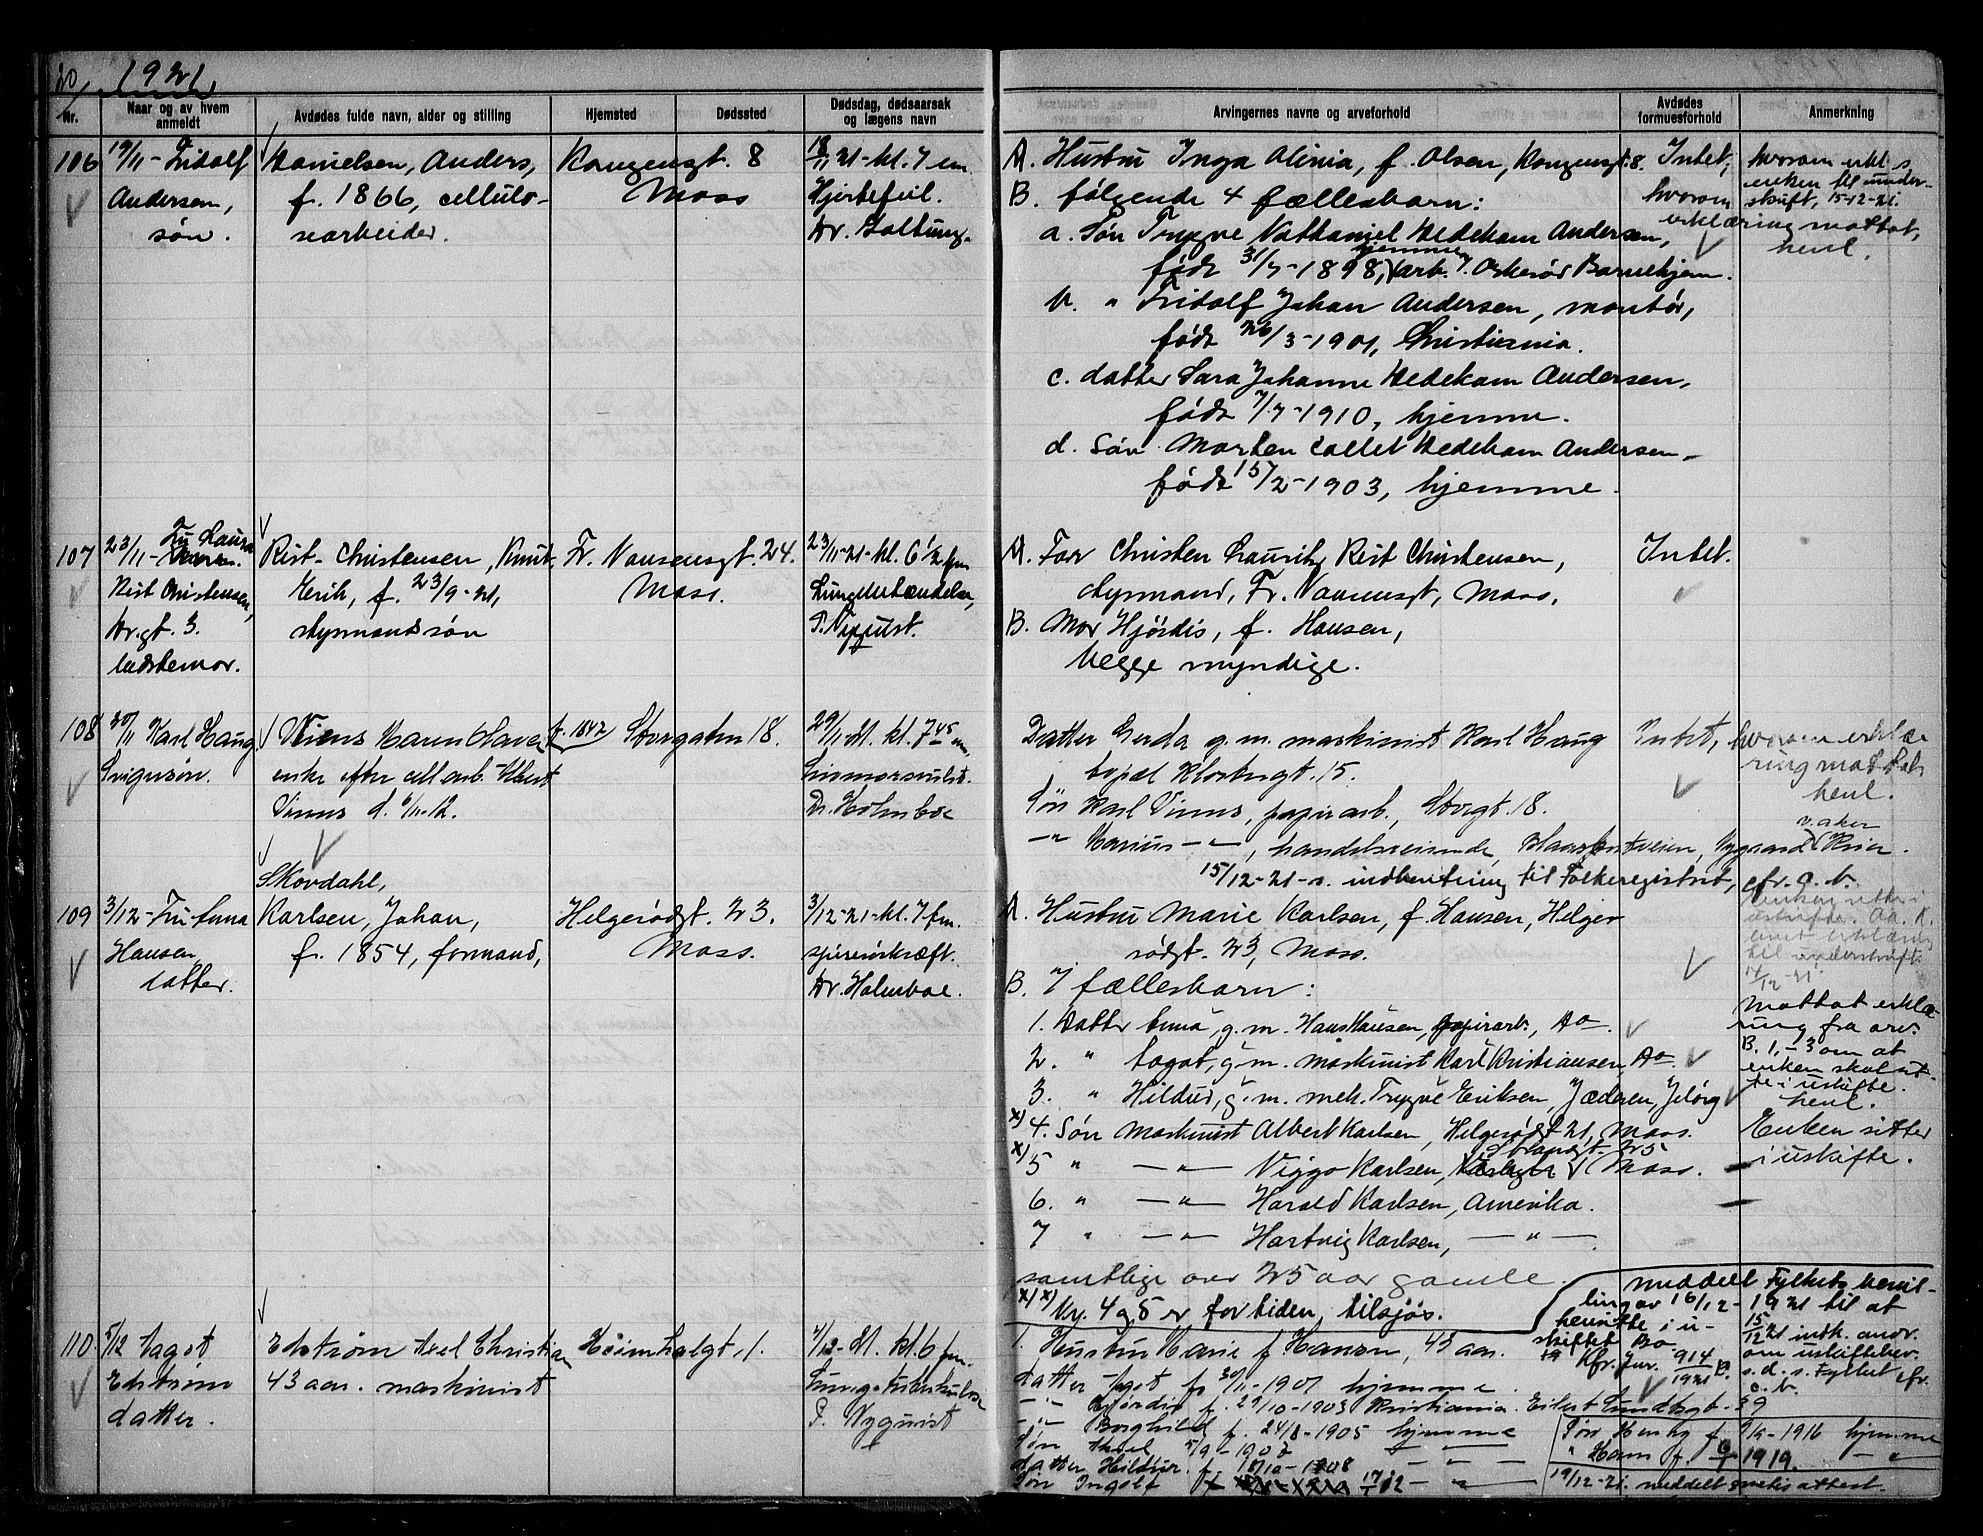 20
1921
Nr.
Naar og av hvem anmeldt
Avdødes fulde navn, alder og stilling
Hjemsted
Dødssted
Dødsdag, dødsaarsak og lægens navn
Arvingernes navne og arveforhold
Avdødes formuesforhold
Anmerkning
106
19/11 - Fridolf
Andersen,
søn.
Danielsen, Anders,
f. 1866, cellulo-
searbeider.
Kongensgt. 8
Moss
18/11 21 - kl. 7 em
Hjertefeil.
Dr. Holtung.
A. Hustru Inga Olinia, f. Olsen, Kongensgt. 8.
B. følgende 4 fællesbarn:
a. Søn Trygve Nathaniel Dedekam Andersen,
født 31/7 - 1898, hjemme, arb. Orkerød Barnehjem.
b. " Fridolf Johan Andersen, montør,
født 26/3 - 1901, Christiania.
c. datter Sara Johanne Dedekam Andersen,
født 7/7 - 1910, hjemme.
d. Søn Morten Collet Dedekam Andersen,
født 15/2 - 1903, hjemme.
Intet,
hvorom
erklæring mottat,
henl.
hvorom erkl. s.
enken til under-
skrift, 15-12-21.
107
23/11 - Fru Laura
Rist Christensen,
Kr.gt. 3.
bedstemor.
Rist-Christensen, Knut
Erik, f. 23/9 - 21,
styrmandssøn
Fr. Nansensgt. 24.
Moss.
23/11 - 21 - kl. 6 1/2 fm
Lungebetændelse,
P. Nyquist.
A. Far Christen Lauritz Rist Christensen,
styrmand, Fr. Nansensgt, Moss.
B. Mor Hjørdis, f. Hansen,
begge myndige.
Intet.
108
30/11 Karl Haug
Svigersøn.
Vinns Karen Olava f. 1842
enke efter cell.arb.
Vinns d. 6/11 - 12.
Storgaten 18.
29/11 - 21. kl. 7 45 em
Livmorsvulst.
Dr. Holmboe
Datter Gerda g. m. maskinist Karl Haug
bopæl Klostergt. 15.
Søn Karl Vinns, papirarb., Storgt. 18.
- " - Marius - " - , handelsreisende,
15/12 - 21 - s. indberetning til Folkeregistret, cfr. c. b.
Intet,
hvorom erklæ
ring mottat
henl.
109
3/12 - Fru Anna
Hansen,
datter.
Skovdahl,
Karlsen, Johan,
f. 1854, formand,
Helgerødgt. 23.
Moss.
3/12 - 21 - kl. 7 fm.
spiserørkræft.
Dr. Holmboe.
A. Hustru Marie Karlsen, f. Hansen, Helge-
rødgt. 23, Moss.
B. 7 fællesbarn:
1. Datter Anna, g. m. Hans Hansen, papirarb., do.
2. " Aagot, g. m. maskinist Karl Kristiansen, do.
3. " Hildur, g. m. mek. Trygve Eriksen, Jæderen, Jeløy
x) 4. Søn maskinist Albert Karlsen, Helgerødgt 21, Moss.
x) 5 " - " - Viggo Karlsen, Strandgt. 25 Moss.
6. " - " - Harald Karlsen, Amerika.
7 " - " - Hartvig Karlsen, - " - .
samtlige over 25 aar gamle.
x) x) Nr. 4 og 5 er for tiden tilsjøs.
til underskrift
17/12 - 21
Mottat erklæ-
ring fra arv.
B. 1, - 3 om at
enken skal sit-
te i uskifte.
henl.
Enken sitter
i uskifte.
meddelt Fylkets bevil-
ling av 16/12 - 1921 til at
hensitte i u-
skiftet Bo
Kfr. Jur. 914/1921 B.
15/12 21 indh. andr.
om uskiftebev.
s. d. s. Fylket cfr.
c. b.
110
5/12 Aagot
Edstrøm
datter.
Edstrøm Axel Christian
43 aar. maskinist
Heimdalgt. 1.
4/12 - 21. kl. 6 fm.
Lunge-tuberkulose
P. Nyquist
1. Hustru Marie f. Hansen, 43 aar.
datter Aagot f. 30/11 - 1901 hjemme.
- " - Hjørdis f. 29/10 - 1903 Kristiania. Eilert Sundtsgt. 39
- " - Borghild f. 24/8 - 1905 hjemme
Søn Axel 5/9 - 1907 - " -
datter Hildur. f. 18/10 - 1908 - " -
Søn Ingolf f. 17/1 12 - " -
Søn Henry f. 9/9 - 1916 hjemme
" Hans f. 1919. - " -
19/12 - 21. meddelt gratis attest.